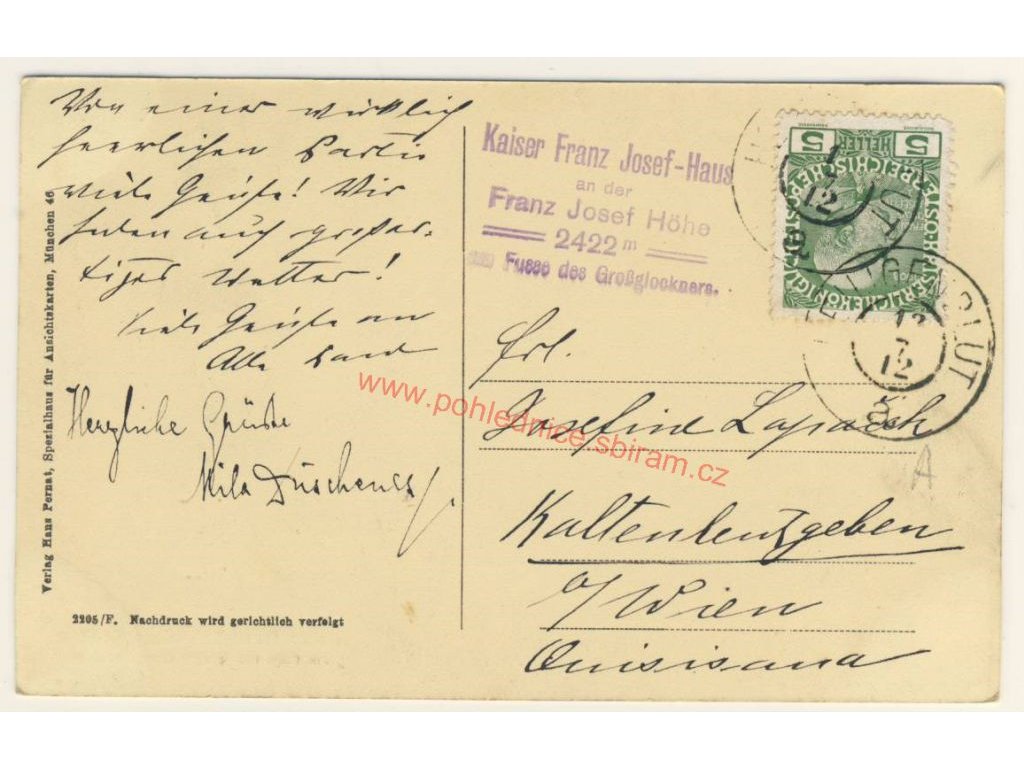 Von einer wirklich
herrlichen Partie
viele Grüße! Wir
haben auch großar-
tiges Wetter!
Viele Grüße an
Alle
Herzliche Grüße
Mila
Verlag Hans Pernat, Spezialhaus für Ansichtskarten, München 46
2205/F. Nachdruck wird gerichtlich verfolgt
Kaiser Franz Josef-Haus
an der
Franz Josef Höhe
2422 m
am Fusse des Großglockners.
5 HELLER 5
HEILIGENBLUT
12
7
12
Frl.
Josefine
Kaltenleutgeben
b/Wien
Quisisana
A
www.pohlednice.sbiram.cz